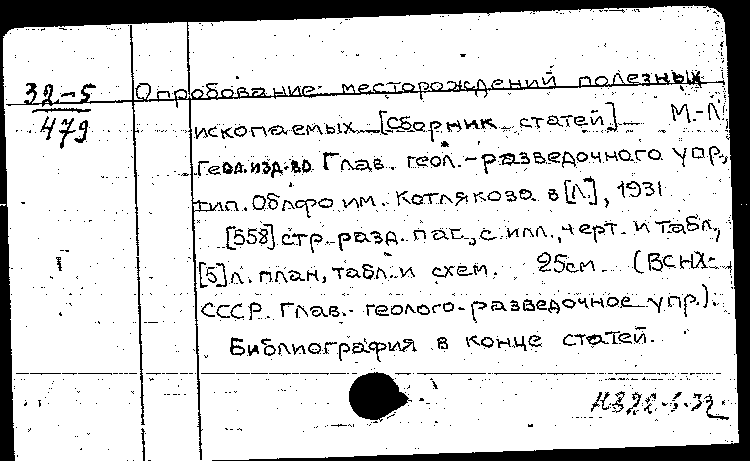 32-5
479
Опробование месторождений полезных
ископаемых [Сборник статей] М.-Л
Геол.изд-во Глав. геол.-разведочного упр,
тип. Облфо им. Котлякова в [Л.], 1931
[558] стр. разд. паг., с илл., черт. и табл,
[5] л. план, табл. и схем. 25см (ВСНХ-
СССР. Глав.- геолого-разведочное упр.).
Библиография в конце статей.